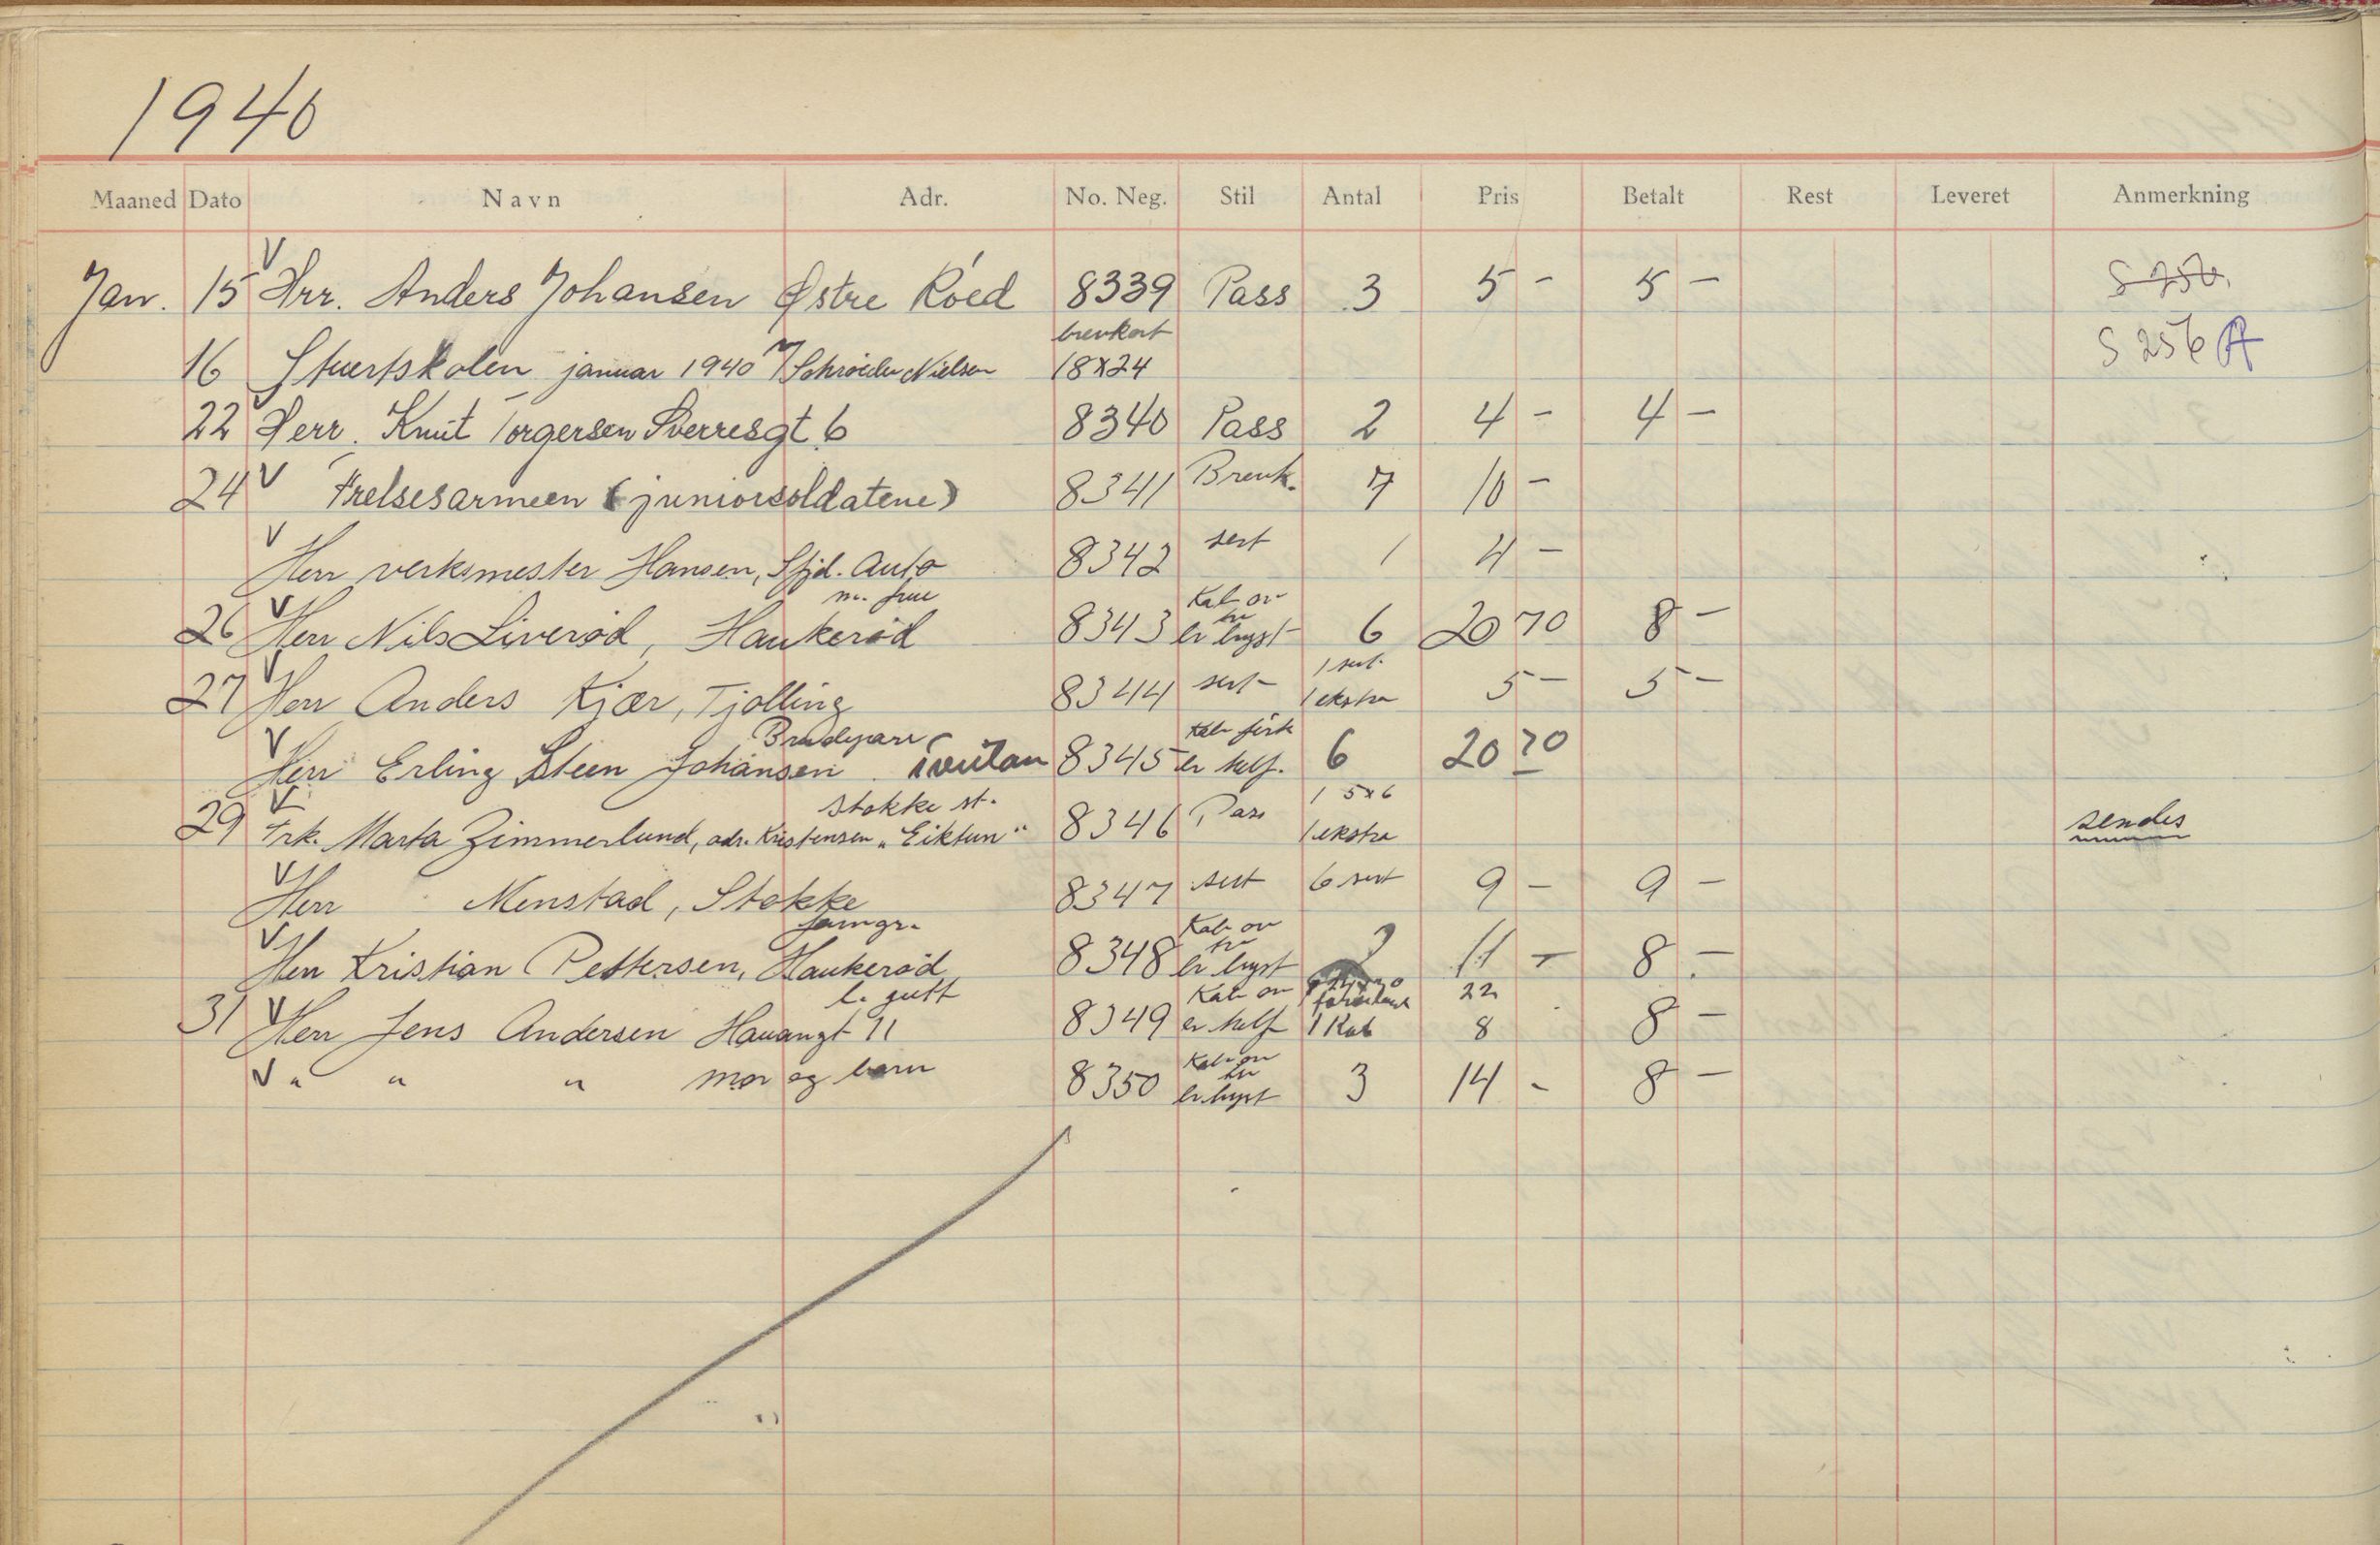 1940
Maaned Dato Navn Adr. No. Neg. Stil Antal Pris Betalt Rest Leveret Anmerkning
Jan. 15 V Hrr. Anders Johansen Østre Roed 8339 Pass 3 5 - 5 - S 250.
brevkort
16 Stuertskolen januar 1940 Schrøder Nielsen 18x24 S 256 A
22 Herr. Knut Torgersen Sverresgt. 6 8340 Pass 2 4 - 4 -
24 V Frelsesarmeen (juniorsoldatene) 8341 Brevk. 7 10 -
V Herr verksmester Hansen, Sfjd. Auto 8342 sert 1 4 -
m. frue Kab or
26 V Herr Nils Liverød, Haukerød 8343 br. byst 6 20 70 8 -
1 sert.
27 V Herr Anders Kjær, Tjølling 8344 sert 1 ekstra 5 - 5 -
Brudepar Kab
V Herr Erling Steen Johansen 8345 br helf. 6 20 70
Stokke st. 1 5x6
29 V Frk. Marta Zimmerlund, adr. Kristensen „Eiktun“ 8346 Pass 1 ekstra sendes
V Herr Menstad, Stokke 8347 sert 6 sert 9 - 9 -
famgr. Kab or
V Herr Kristian Pettersen, Haukerød 8348 br byst 2 11 - 8 -
l. gutt Kab or 22
31 V Herr Jens Andersen Hauangt 11 8349 br helf 1 Kab 8 8 -
Kab or
V " " " mor og barn 8350 br. byst 3 14 - 8 -